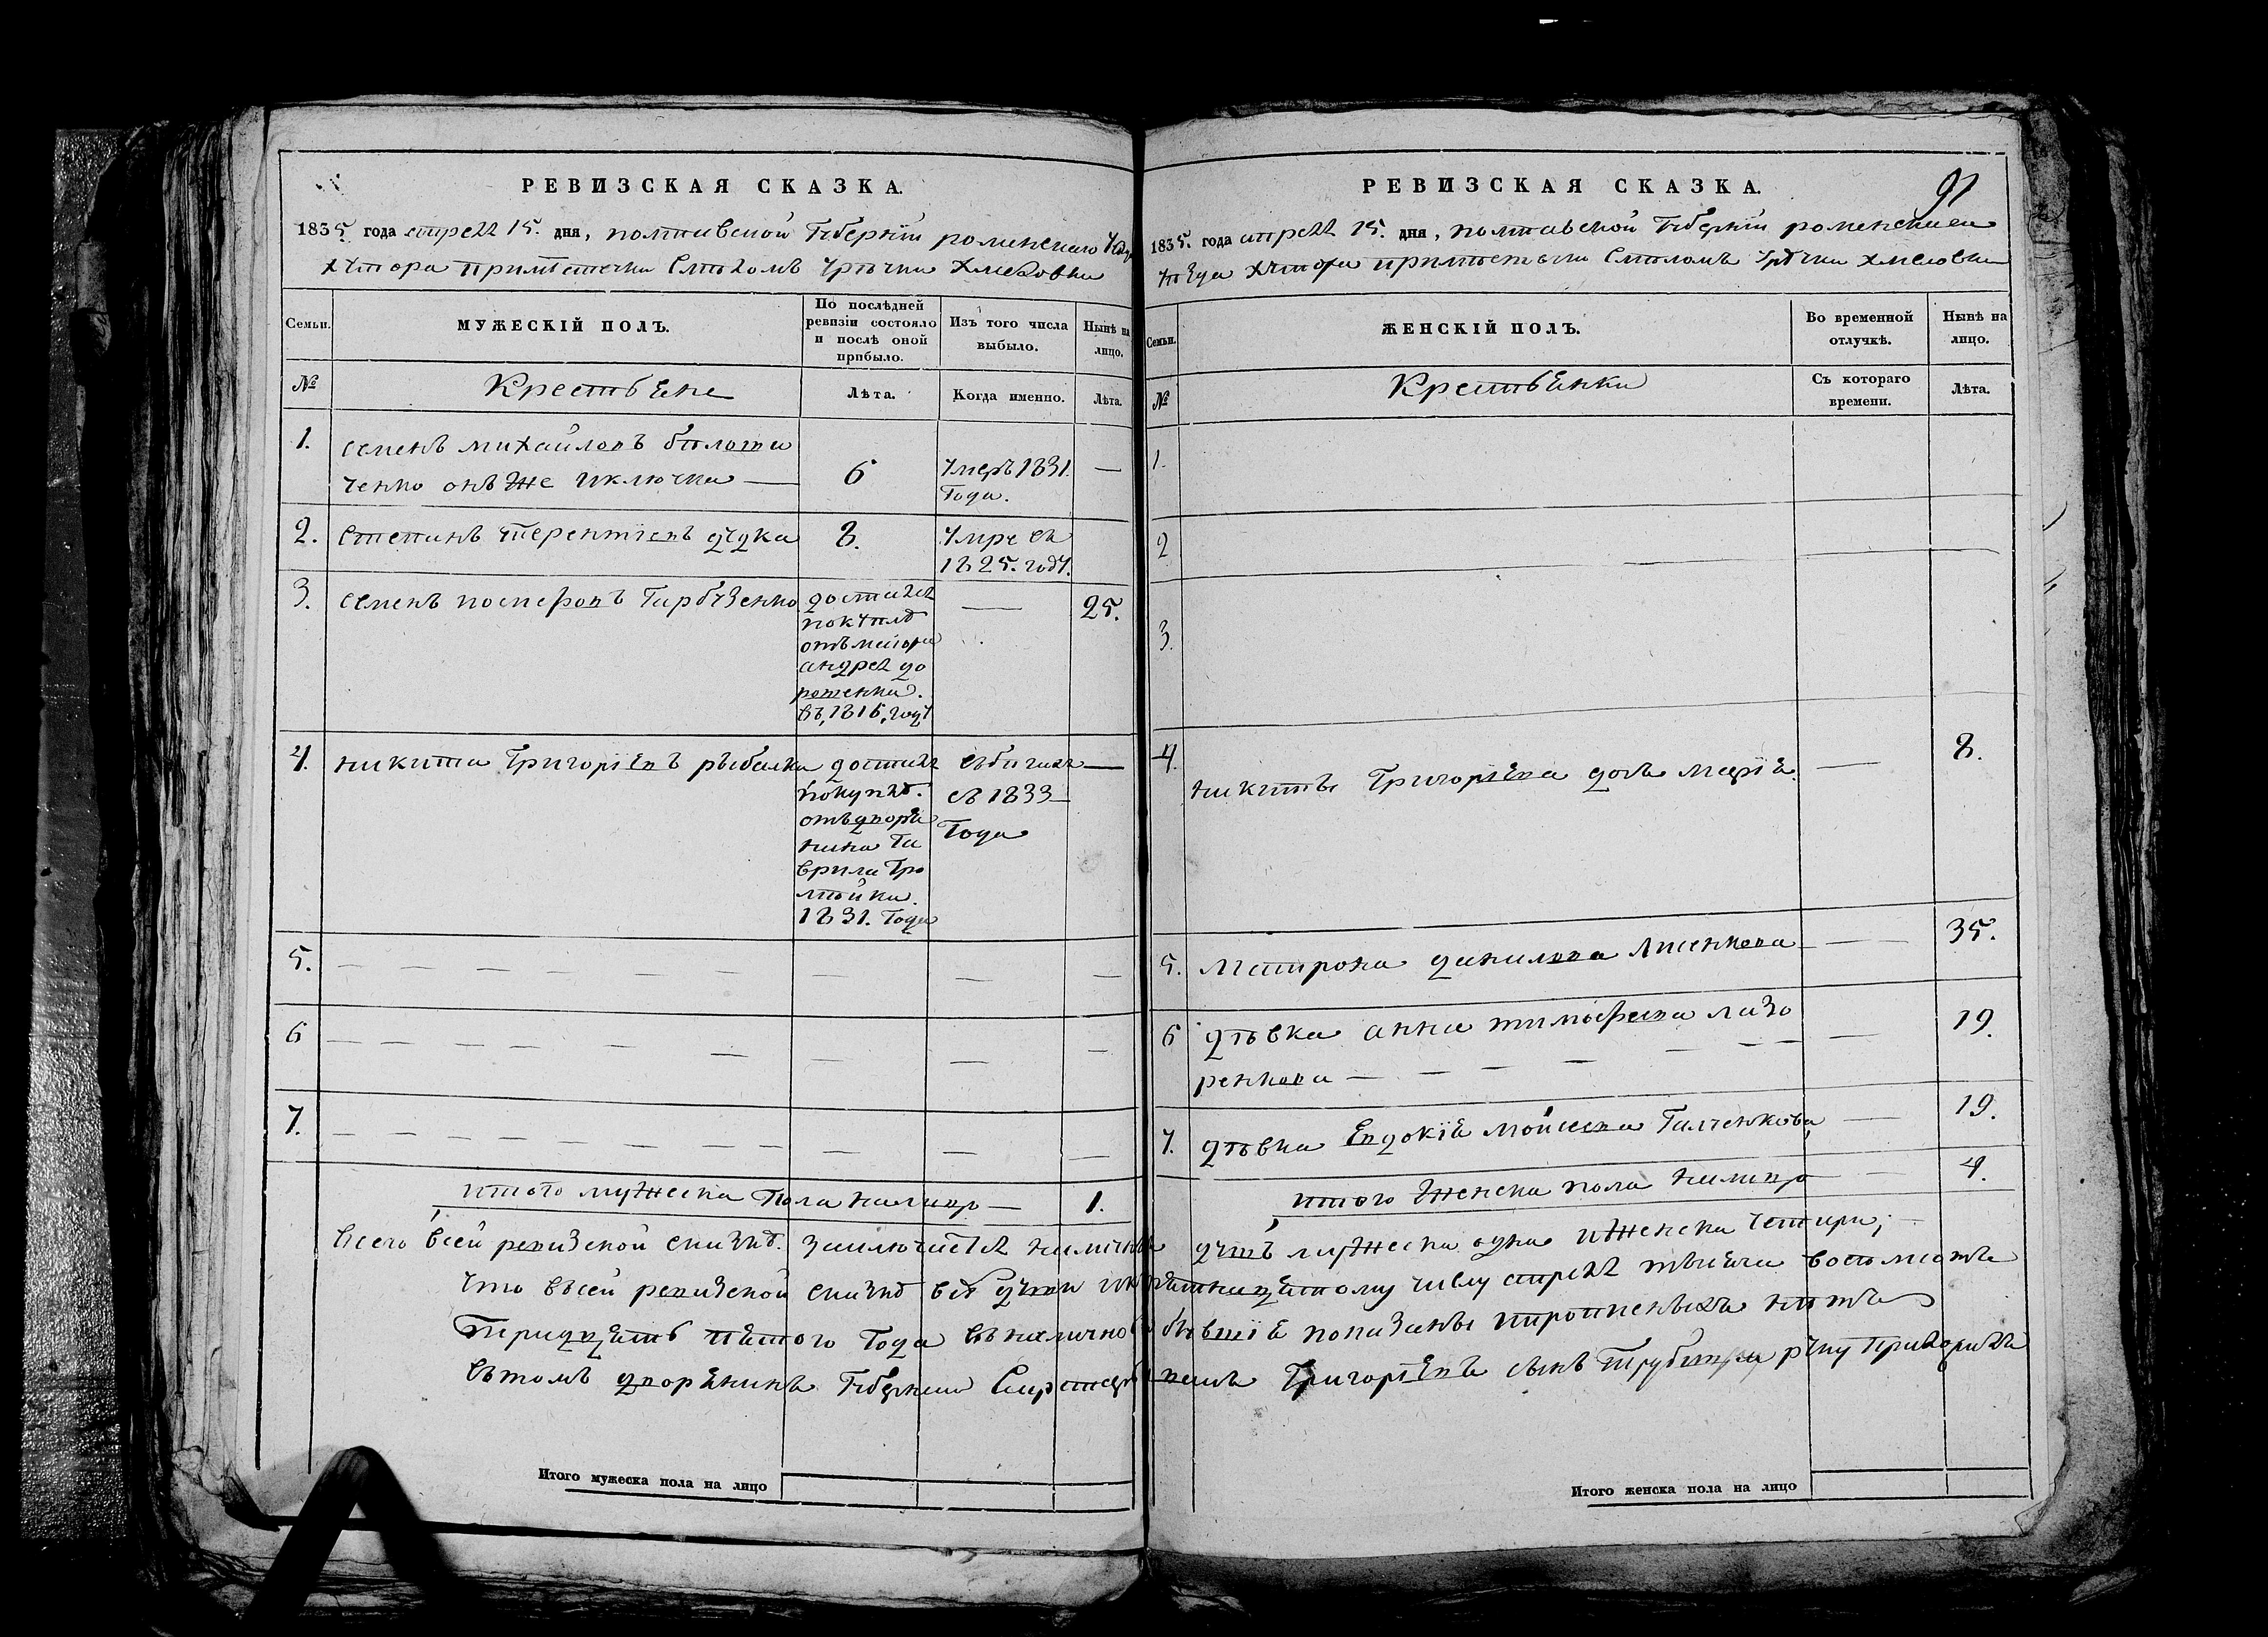 РЕВИЗСКАЯ СКАЗКА.
1835. года апреля 15. дня, полтавской Губернїи роменскаго
хутора при местечки Смеломъ урѣчки хмеловки
Семьи.
МУЖЕСКІЙ ПОЛЪ.
По послѣдней ревизіи состояло и послѣ оной прибыло.
Изъ того числа выбыло.
Нынѣ на лицо.
№
Крестьяне
Лѣта.
Когда именно.
Лѣта.
1.
семенъ михайловъ
ченко онъ же
6
умеръ 1831.
Года.
—
2.
степанъ терентїевъ дудка
8.
умре въ
1825. году.
3.
семенъ Гарбузенко
достался
покупкѣ
отъ маіора
андрея до
рошенка.
въ, 1816, году
—
25.
4.
никита Григорїевъ рыбалка
достался
покупкѣ.
отъ дворя
нина Га
врила Гро
мѣйки.
1831. Года
събѣгахъ
съ 1833
Года
—
5.
6
7.
итого мужеска пола налицо —
1.
Итого мужеска пола на лицо
РЕВИЗСКАЯ СКАЗКА.
91
1835. года апреля 15. дня, полтавской Губернїи роменскаго
уѣзда хутора приместечки Смеломъ урѣчки хмеловки
Семьи.
ЖЕНСКІЙ ПОЛЪ.
Во временной отлучкѣ.
Нынѣ на лицо.
№
Крестьянки
Съ котораго времени.
Лѣта.
1.
2
3.
4.
никиты Григорїева дочь марїя.
—
8.
5.
Матрона данилова Лисенкова
—
35.
6
дѣвка анна тимофеева лазо
ренкова —
—
19.
7.
дѣвка Евдокїя мойсеева Галченкова
—
19.
итого женска пола налицо
4.
Всего всей ревизской сказкѣ. заключается наличныхъ душъ мужеска одна и женска четири;
что въсей ревизской сказкѣ всѣ души пятнадцятому числу апреля тысяча восѣмсотъ
тридцять пятого Года въналичности бывшїя показаны и прописныхъ нѣтъ
въ томъ дворянинъ Григорїевъ сынъ руку приложилъ
Итого женска пола на лицо